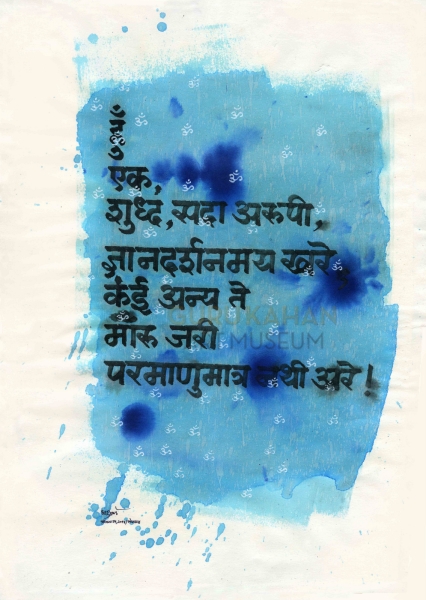 एक,
शुध्द, सदा अरुपी,
ज्ञानदर्शनमय खरे
कंई अन्य ते
मांरु जरी
परमाणुमात्र नथी अरे!
KAHAN
MUSEUM